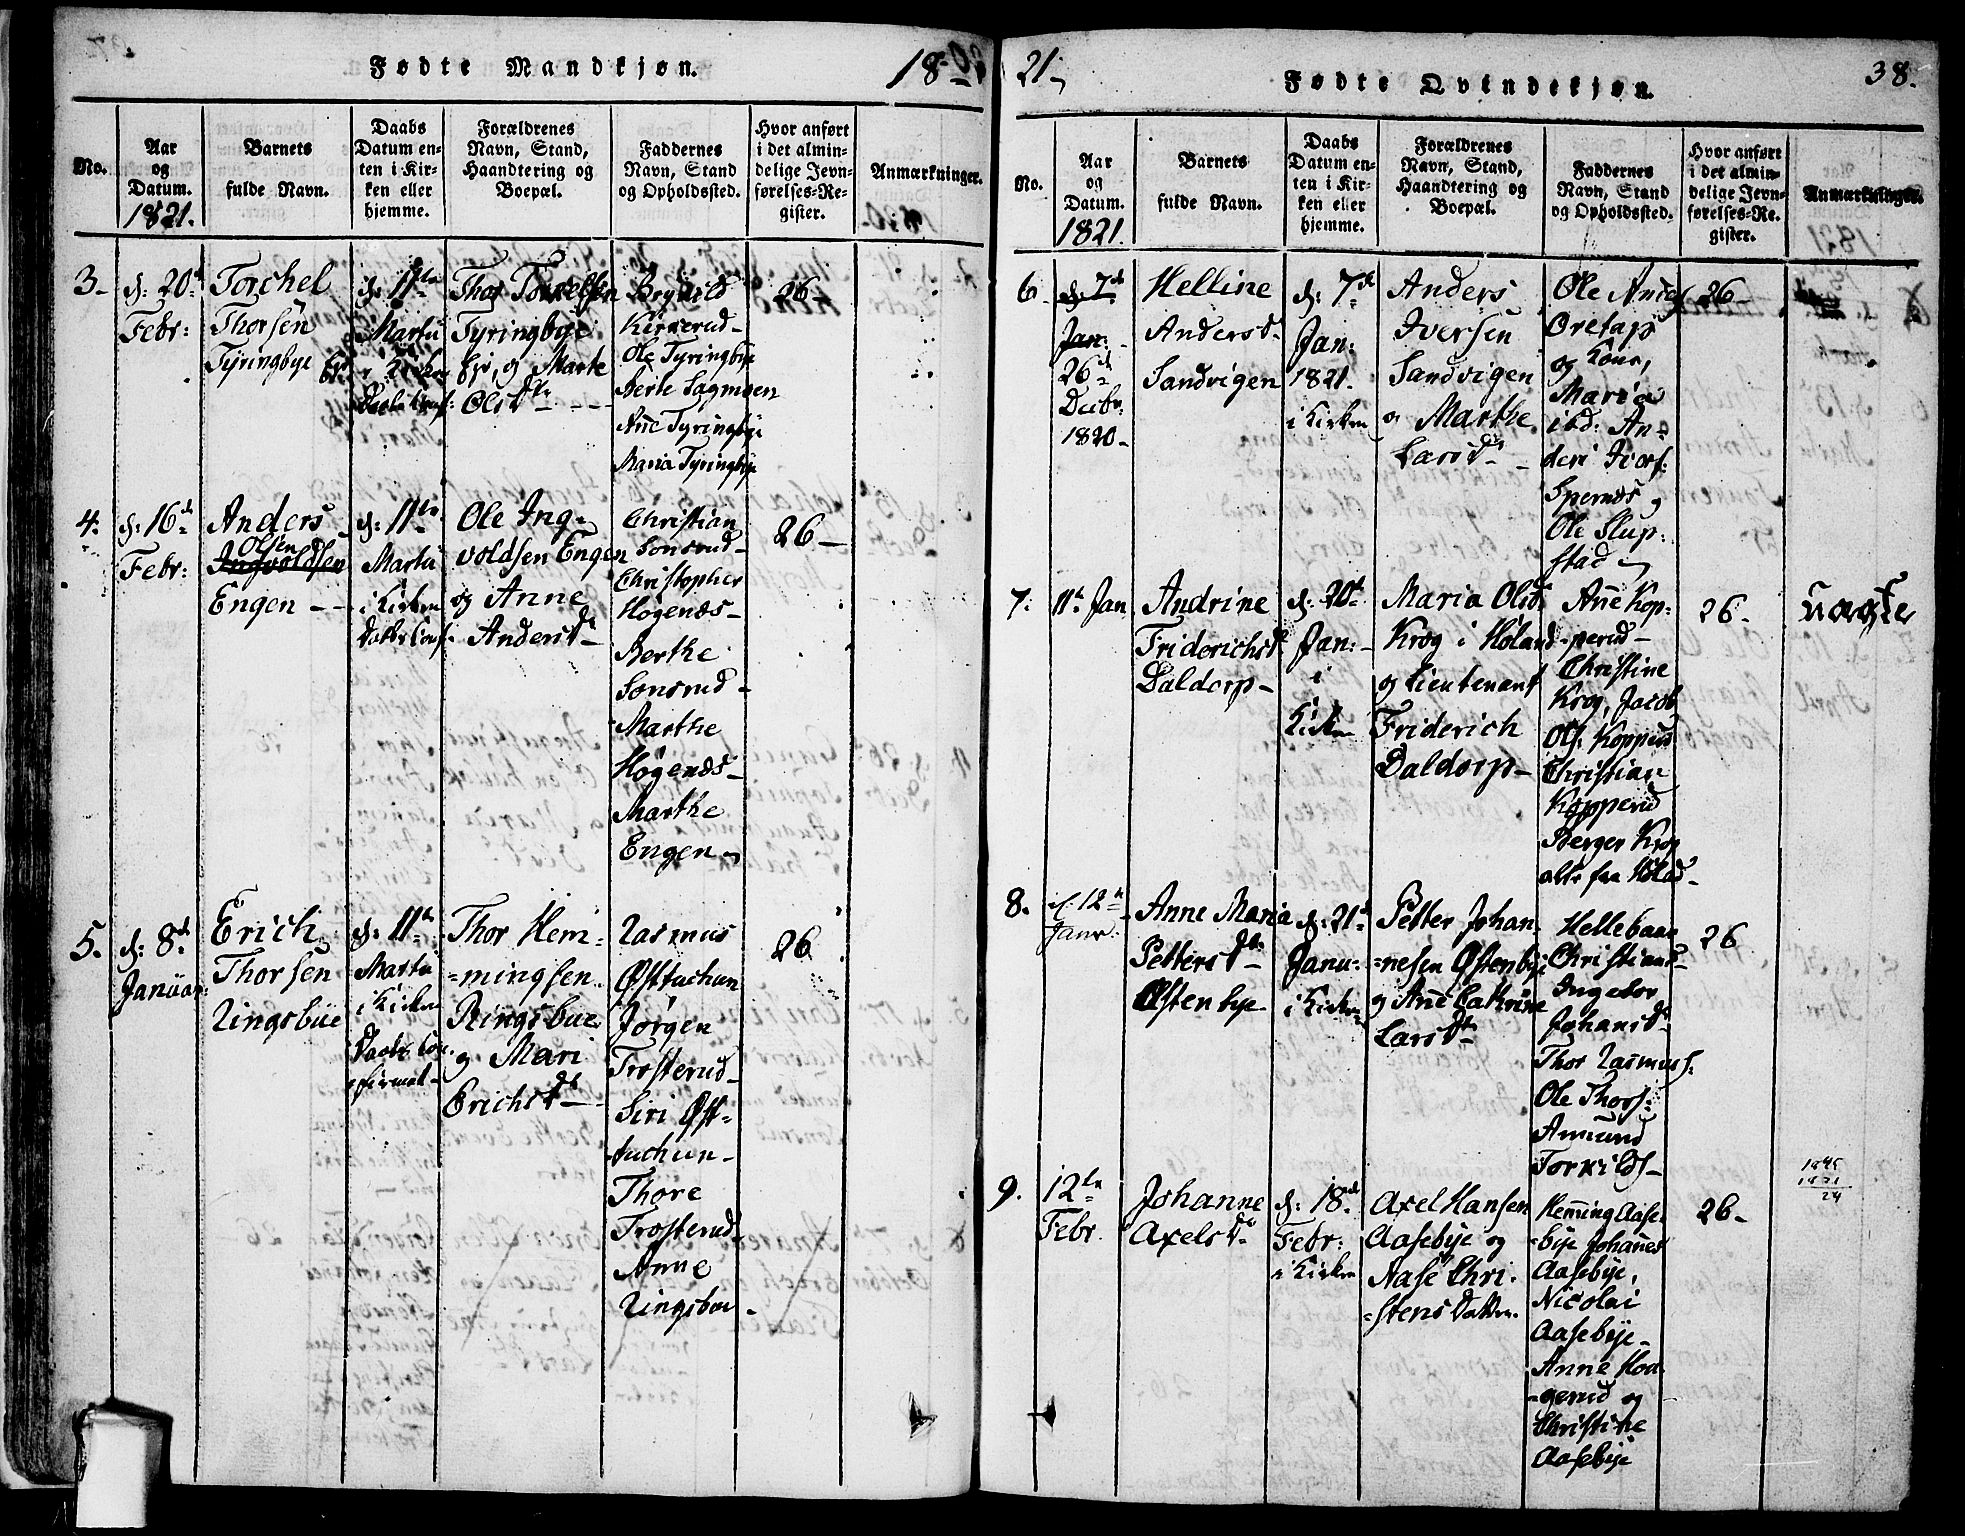 Fødte Mandkjøn.
18
No.
Aar
og
Datum.
1821.
Barnets
fulde Navn.
Daabs
Datum en-
ten i Kir-
ken eller
hjemme.
Forældrenes
Navn, Stand,
Haandtering og
Boepæl.
Faddernes
Navn, Stand
og Opholdssted.
Hvor anført
i det almin-
delige Jevn-
førelses-Re-
gister.
Anmærkninger.
3-
d: 20de
Febr:
Torchel
Thorsen
Tyringbye
d: 11te
Martii
i Kirken
Thor
Tyringbye
Eje, og Marte
Olsdtr
Kirkerud-
Ole Tyringbye
Berte Sagmoen
Ane Tyringbye
Maria Tyringbye
26-
4.
d: 16de
Febr:
Anders
Olsen
Ingvoldsen
Engen --
d: 11te
Martii
i Kirken
Ole Ing-
voldsen Engen
og Anne
Andersdr
Christian
Sonsrud-
Christopher
Høgenæs-
Berthe
Sonsrud-
Marthe
Høgenæs-
Marthe
Engen
26-
5.
d: 8de
Januar:
Erich
Thorsen
Ringsbue
d: 11te
Martii
i Kirken
Thor Hem-
=mingsen
Ringsbue
og Mari
Erichsdr
Rasmus
Jørgen
Trosterud-
Siri Øst-
Thore
Trosterud-
Anne
Ringsbue
26
21
Fødte Qvindekjøn.
38.
No.
Aar
og
Datum.
1821.
Barnets
fulde Navn.
Daabs
Datum en-
ten i Kir-
ken eller
hjemme.
Forældrenes
Navn, Stand,
Haandtering og
Boepæl.
Faddernes
Navn, Stand
og Opholdssted.
Hvor anført
i det almin-
delige Jevn-
førelses-Re-
gister.
Anmærkninger.
6
d. 7de
Jan:
26de
Decbr
1820-
Helline
Andersd.
Sandvigen
d: 7de
Jan:
1821.
i Kirken
Anders
Iversen
Sandvigen
og Marthe
Larsdr
Ole
og Kone,
Maria
ibd: An-
ders Ivers:
og
Ole Slup-
stad
26-
7.
11te Jan
Andrine
Friderichsd
Daldorp-
d: 20de
Jan:
i
Kirken
Maria Olsd
Krog i Høland
og Lieutenant
Friderich
Daldorp-
Ane Kop-
perud-
Christine
Krog, Jacob
Ols: Kopperud
Christian
Kopperud
Berger Krog
alle fra Høland-
26.
uægte
8.
d. 12te
Janr:
Anne Maria
Pettersdtr
Østenbye
d: 21de
Janu:
i Kirken
Petter Johan
=nesen Østenbye
og Ane Cathrine
Larsdtr
Christians-
Ingebor
Johansdr
Thor Rasmuss:
Ole Thors:
Amund
Torkilds-
26
9.
12te
Febr.
Johanne
Axelsdr
d: 18de
Febr:
i Kirken
Axel Hansen
Aasebye og
Aase Chri-
=stensdatter.
Hemming Aase-
=bye Johanes
Aasebye,
Nicolai
Aasebye-
Anne Hoa-
=gerud og
Christine
Aasebye
26-
1845
1821
24